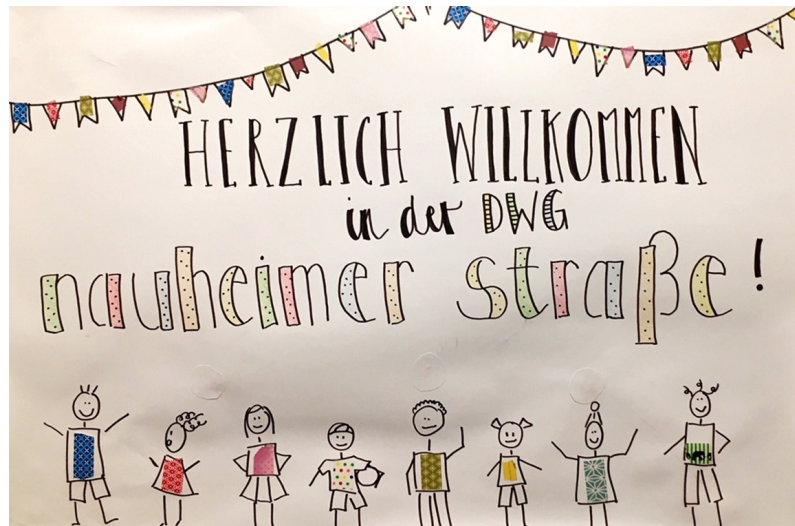 HERZLICH WILLKOMMEN
in der DWG
nauheimer straße!